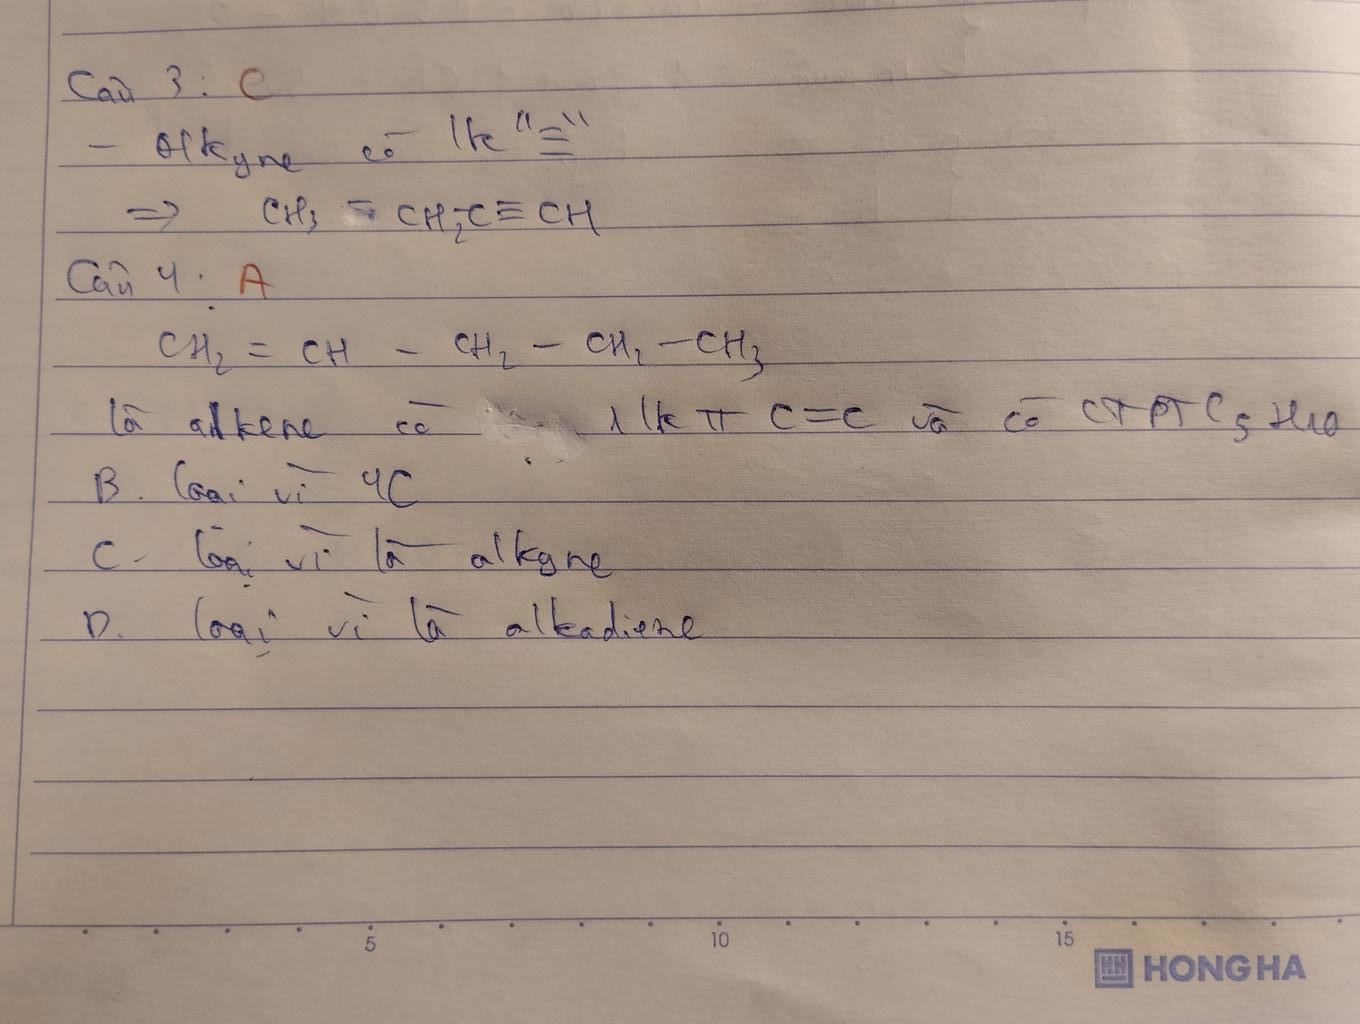 Câu 3: C
- Alkyne có lk "≡"
=> CH3 - CH2-C≡CH
Câu 4. A
CH2 = CH - CH2 - CH2 - CH3
là alkene có 1 lk π C=C và có CTPT C5H10
B. loại vì 4C
C- loại vì là alkyne
D. loại vì là alkadiene
5 10 15
HONG HA